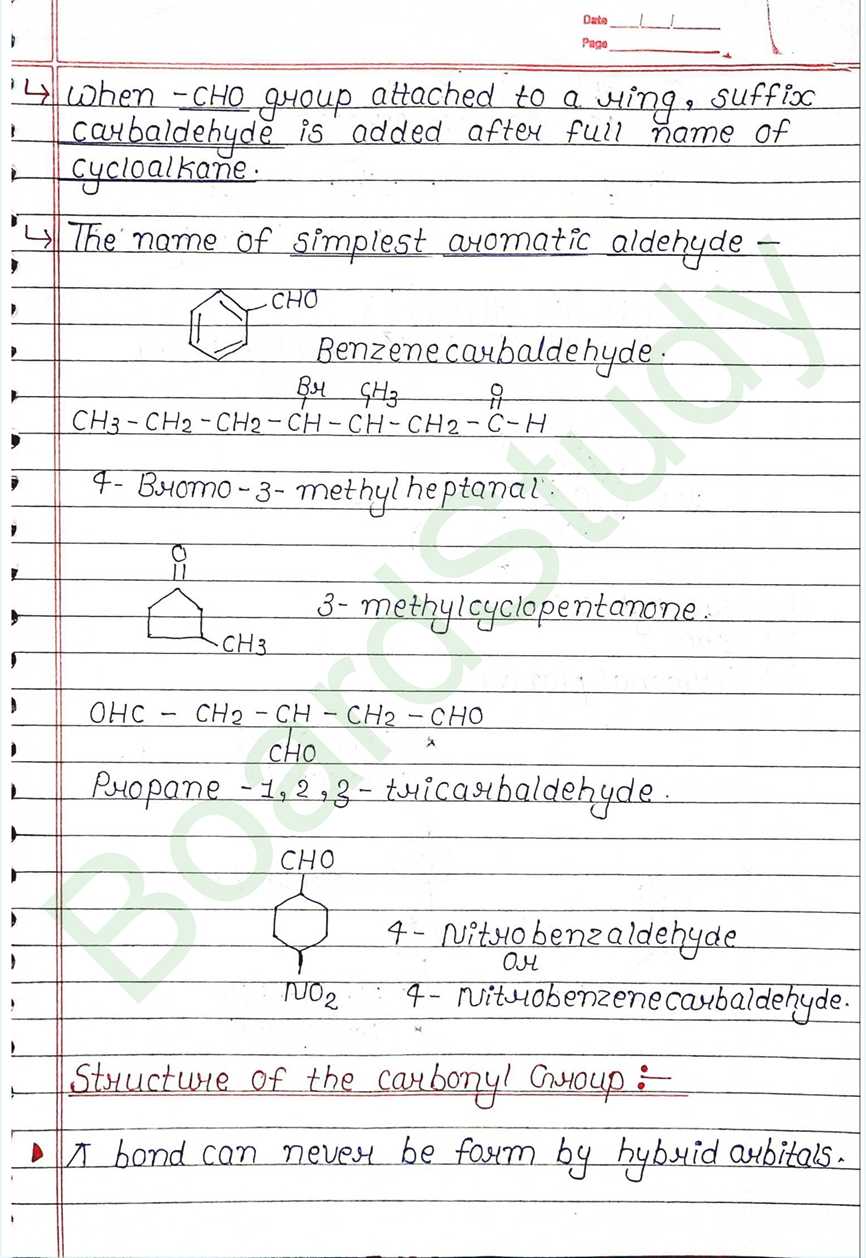 Date
Page
↳ When -CHO group attached to a ring, suffix
carbaldehyde is added after full name of
cycloalkane.
↳ The name of simplest aromatic aldehyde –
CHO
Benzenecarbaldehyde.
Br CH3 O
CH3 – CH2 – CH2 – CH – CH – CH2 – C – H
4- Bromo - 3- methylheptanal.
O
3- methylcyclopentanone.
CH3
OHC – CH2 – CH – CH2 – CHO
CHO
Propane -1,2,3- tricarbaldehyde.
CHO
4- Nitrobenzaldehyde
or
NO2 4- Nitrobenzenecarbaldehyde.
Structure of the carbonyl Group :–
π bond can never be form by hybrid arbitals.
BoardStudy